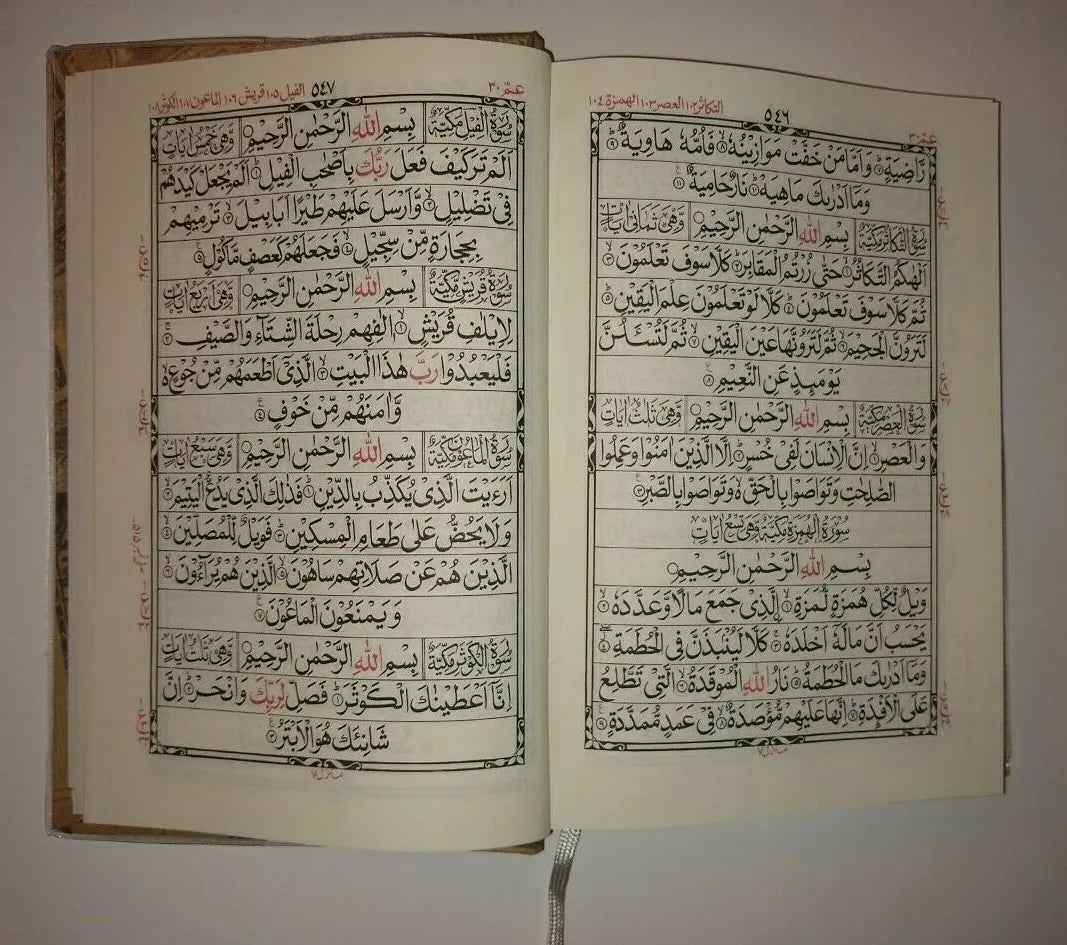 التكاثر ١٠٢ العصر ١٠٣ الهمزة ١٠٤
٥٤٦
عمّ ٣٠
رَّاضِيَةٍ ؕ۷ وَاَمَّا مَنْ خَفَّتْ مَوَازِيْنُهٗ ۙ۸ فَاُمُّهٗ هَاوِيَةٌ ؕ۹
وَمَاۤ اَدْرٰىكَ مَاهِيَهْ ؕ۱۰ نَارٌ حَامِيَةٌ ۱۱
سُوْرَةُ التَّكَاثُرِ مَكِّيَّةٌ بِسْمِ اللّٰهِ الرَّحْمٰنِ الرَّحِيْمِ وَّهِىَ ثَمَانِىْ اٰيَاتٍ
اَلْهٰكُمُ التَّكَاثُرُ ۙ۱ حَتّٰى زُرْتُمُ الْمَقَابِرَ ؕ۲ كَلَّا سَوْفَ تَعْلَمُوْنَ ۙ۳
ثُمَّ كَلَّا سَوْفَ تَعْلَمُوْنَ ؕ۴ كَلَّا لَوْ تَعْلَمُوْنَ عِلْمَ الْيَقِيْنِ ؕ۵
لَتَرَوُنَّ الْجَحِيْمَ ۙ۶ ثُمَّ لَتَرَوُنَّهَا عَيْنَ الْيَقِيْنِ ۙ۷ ثُمَّ لَتُسْـَٔلُنَّ
يَوْمَىِٕذٍ عَنِ النَّعِيْمِ ۸
سُوْرَةُ الْعَصْرِ مَكِّيَّةٌ بِسْمِ اللّٰهِ الرَّحْمٰنِ الرَّحِيْمِ وَّهِىَ ثَلٰثُ اٰيَاتٍ
وَالْعَصْرِ ۙ۱ اِنَّ الْاِنْسَانَ لَفِىْ خُسْرٍ ۙ۲ اِلَّا الَّذِيْنَ اٰمَنُوْا وَعَمِلُوا
الصّٰلِحٰتِ وَتَوَاصَوْا بِالْحَقِّ ۙ۬ وَتَوَاصَوْا بِالصَّبْرِ ۳
سُوْرَةُ الْهُمَزَةِ مَكِّيَّةٌ وَّهِىَ تِسْعُ اٰيَاتٍ
بِسْمِ اللّٰهِ الرَّحْمٰنِ الرَّحِيْمِ
وَيْلٌ لِّكُلِّ هُمَزَةٍ لُّمَزَةِ ۙ۱ اۨلَّذِىْ جَمَعَ مَالًا وَّعَدَّدَهٗ ۙ۲
يَحْسَبُ اَنَّ مَالَهٗۤ اَخْلَدَهٗ ۚ۳ كَلَّا لَيُنْۢبَذَنَّ فِى الْحُطَمَةِ ۖ۴
وَمَاۤ اَدْرٰىكَ مَا الْحُطَمَةُ ؕ۵ نَارُ اللّٰهِ الْمُوْقَدَةُ ۙ۶ الَّتِىْ تَطَّلِعُ
عَلَى الْاَفْـِٕدَةِ ؕ۷ اِنَّهَا عَلَيْهِمْ مُّؤْصَدَةٌ ۙ۸ فِىْ عَمَدٍ مُّمَدَّدَةٍ ۹
منزل ٧
الفيل ١٠٥ قريش ١٠٦ الماعون ١٠٧ الكوثر ١٠٨
٥٤٧
عمّ ٣٠
سُوْرَةُ الْفِيْلِ مَكِّيَّةٌ بِسْمِ اللّٰهِ الرَّحْمٰنِ الرَّحِيْمِ وَّهِىَ خَمْسُ اٰيَاتٍ
اَلَمْ تَرَ كَيْفَ فَعَلَ رَبُّكَ بِاَصْحٰبِ الْفِيْلِ ؕ۱ اَلَمْ يَجْعَلْ كَيْدَهُمْ
فِىْ تَضْلِيْلٍ ۙ۲ وَّاَرْسَلَ عَلَيْهِمْ طَيْرًا اَبَابِيْلَ ۙ۳ تَرْمِيْهِمْ
بِحِجَارَةٍ مِّنْ سِجِّيْلٍ ۙ۴ فَجَعَلَهُمْ كَعَصْفٍ مَّاْكُوْلٍ ۵
سُوْرَةُ قُرَيْشٍ مَّكِّيَّةٌ بِسْمِ اللّٰهِ الرَّحْمٰنِ الرَّحِيْمِ وَّهِىَ اَرْبَعُ اٰيَاتٍ
لِاِيْلٰفِ قُرَيْشٍ ۙ۱ اٖلٰفِهِمْ رِحْلَةَ الشِّتَآءِ وَالصَّيْفِ ۚ۲
فَلْيَعْبُدُوْا رَبَّ هٰذَا الْبَيْتِ ۙ۳ الَّذِىْۤ اَطْعَمَهُمْ مِّنْ جُوْعٍ ۙ۬
وَّاٰمَنَهُمْ مِّنْ خَوْفٍ ۴
سُوْرَةُ الْمَاعُوْنِ مَكِّيَّةٌ بِسْمِ اللّٰهِ الرَّحْمٰنِ الرَّحِيْمِ وَّهِىَ سَبْعُ اٰيَاتٍ
اَرَءَيْتَ الَّذِىْ يُكَذِّبُ بِالدِّيْنِ ؕ۱ فَذٰلِكَ الَّذِىْ يَدُعُّ الْيَتِيْمَ ۙ۲
وَلَا يَحُضُّ عَلٰى طَعَامِ الْمِسْكِيْنِ ؕ۳ فَوَيْلٌ لِّلْمُصَلِّيْنَ ۙ۴
الَّذِيْنَ هُمْ عَنْ صَلَاتِهِمْ سَاهُوْنَ ۙ۵ الَّذِيْنَ هُمْ يُرَآءُوْنَ ۙ۶
وَيَمْنَعُوْنَ الْمَاعُوْنَ ۷
سُوْرَةُ الْكَوْثَرِ مَكِّيَّةٌ بِسْمِ اللّٰهِ الرَّحْمٰنِ الرَّحِيْمِ وَّهِىَ ثَلٰثُ اٰيَاتٍ
اِنَّاۤ اَعْطَيْنٰكَ الْكَوْثَرَ ؕ۱ فَصَلِّ لِرَبِّكَ وَانْحَرْ ؕ۲ اِنَّ
شَانِئَكَ هُوَ الْاَبْتَرُ ۳
منزل ٧